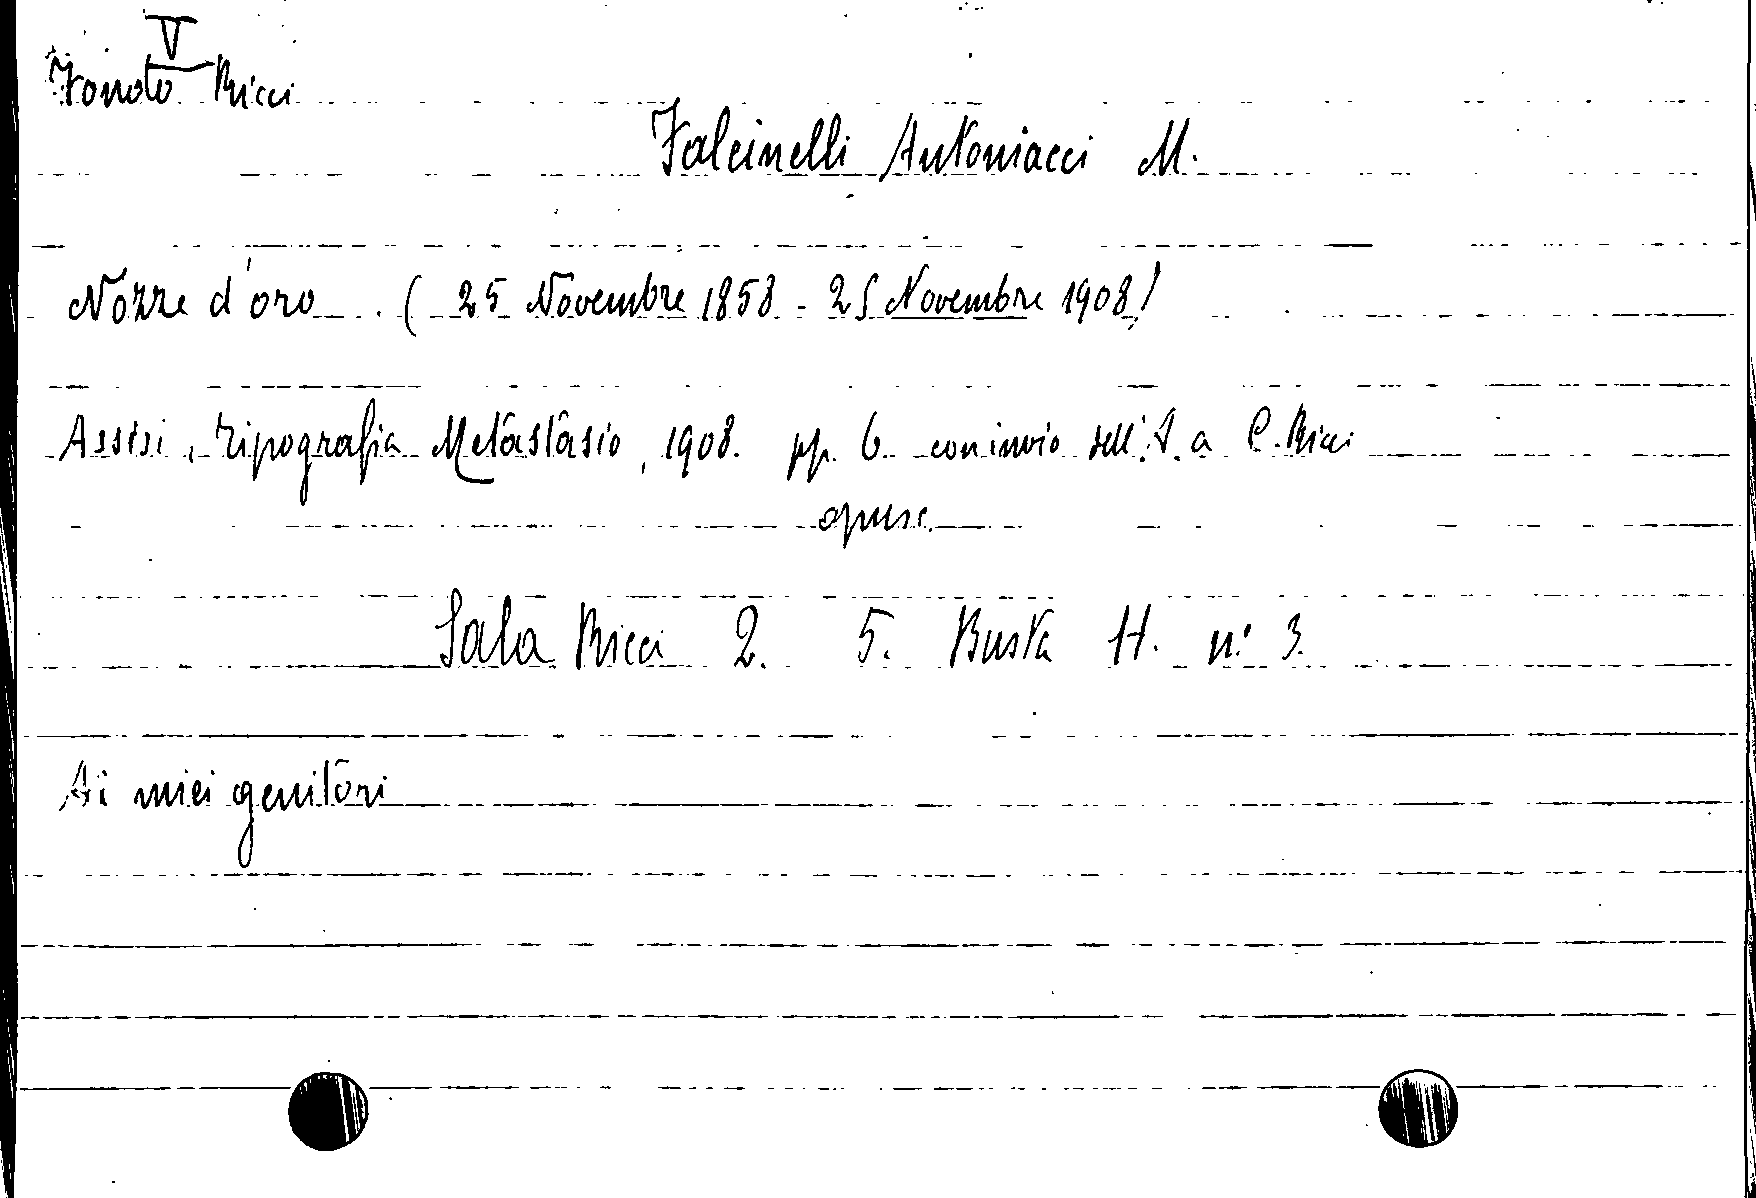 V
Fondo Ricci
Falcinelli Antoniacci M.
Nozze d'oro. (25 Novembre 1858 - 25 Novembre 1908)
Assisi, Tipografia Metastasio, 1908. pp. 6 con invio dell'A. a C. Ricci
opusc.
Sala Ricci 2. 5. Busta H. n° 3.
Ai miei genitori